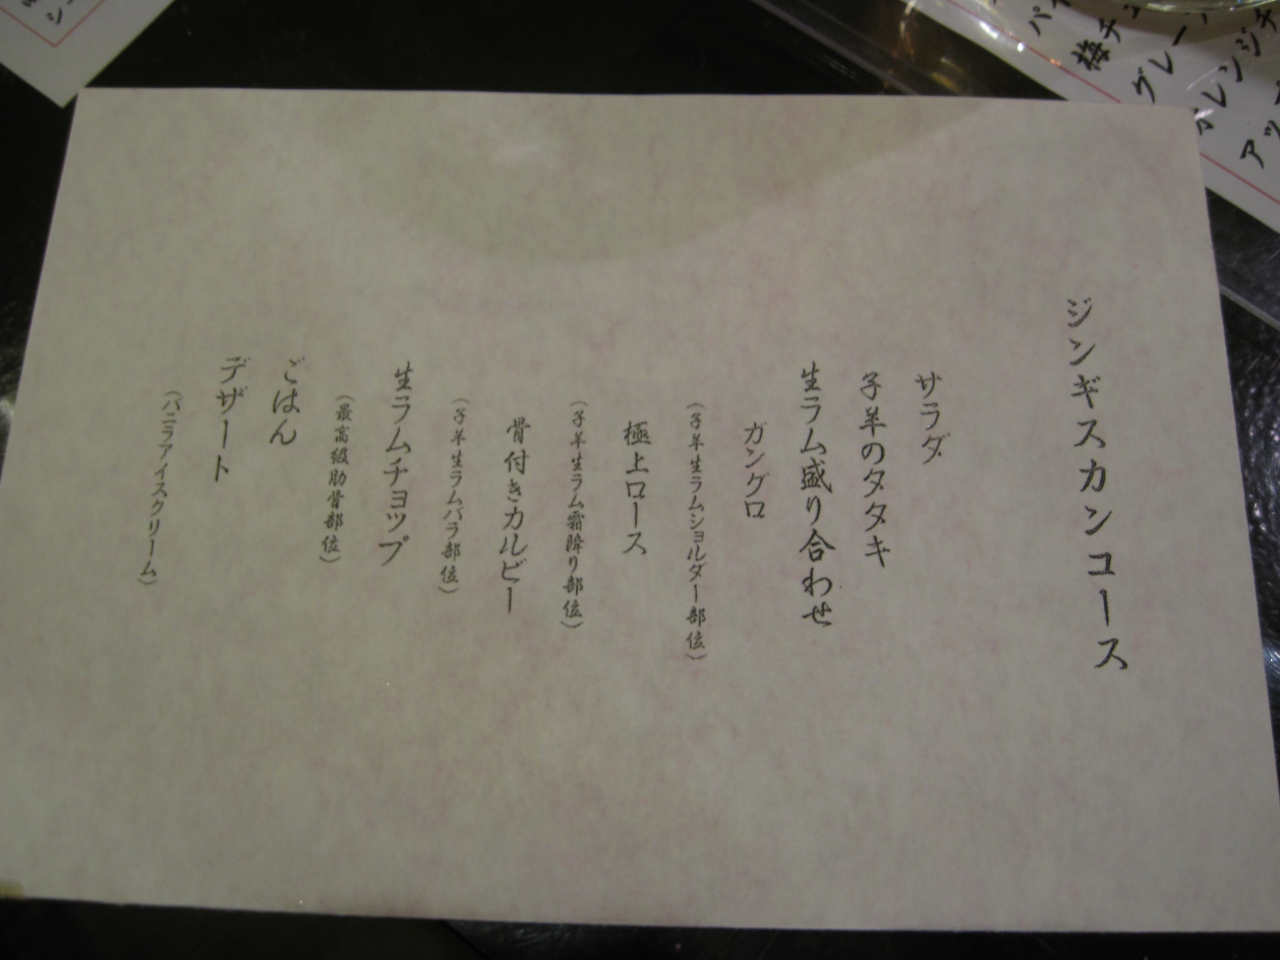 ジンギスカンコース
サラダ
子羊のタタキ
生ラム盛り合わせ
ガングロ
(子羊生ラムショルダー部位)
極上ロース
(子羊生ラム霜降り部位)
骨付きカルビー
(子羊生ラムバラ部位)
生ラムチョップ
(最高級肋骨部位)
ごはん
デザート
(バニラアイスクリーム)
梅チュ
グレー
オレンジチ
アッ
パイ
シ